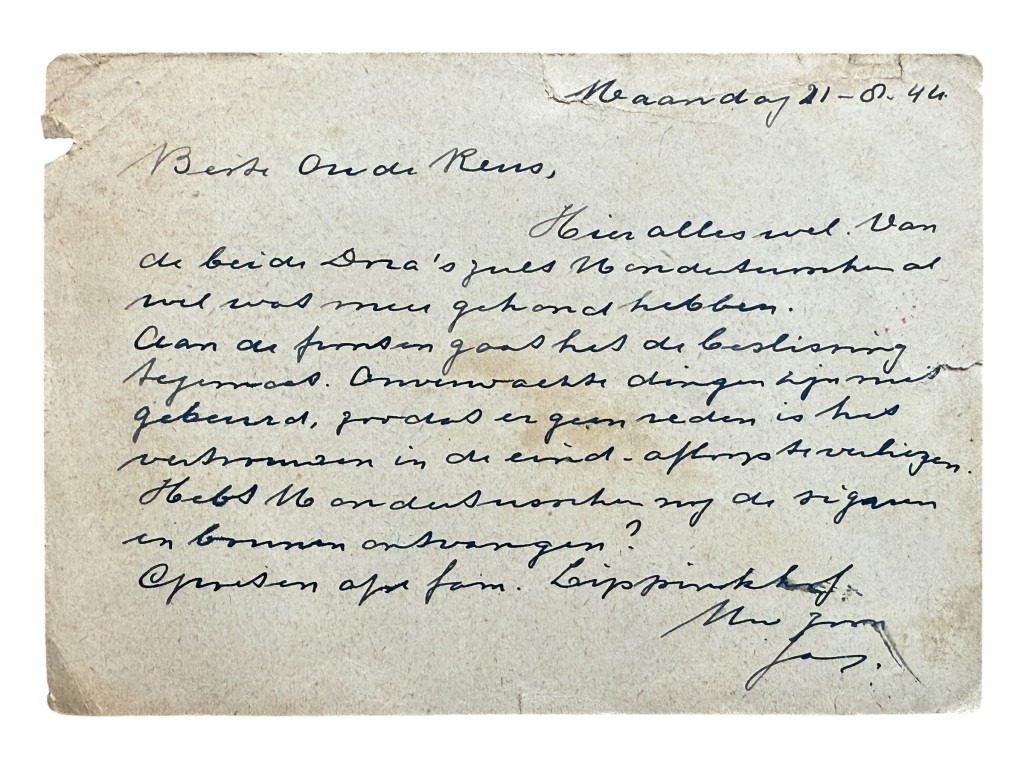 Maandag 21-8-44.
Beste Oude Reus,
Hier alles wel. Van
de beide zult U ondertusschen al
wel wat meer gehoord hebben.
Aan de fronten gaat het de beslissing
tegemoet. Onverwachte dingen zijn niet
gebeurd, zoodat er geen reden is het
vertrouwen in de eind-afloop te verliezen.
Hebt U ondertusschen nog de sigaren
en bonnen ontvangen?
Groeten fam. Lippinkhof.
Uw zoon